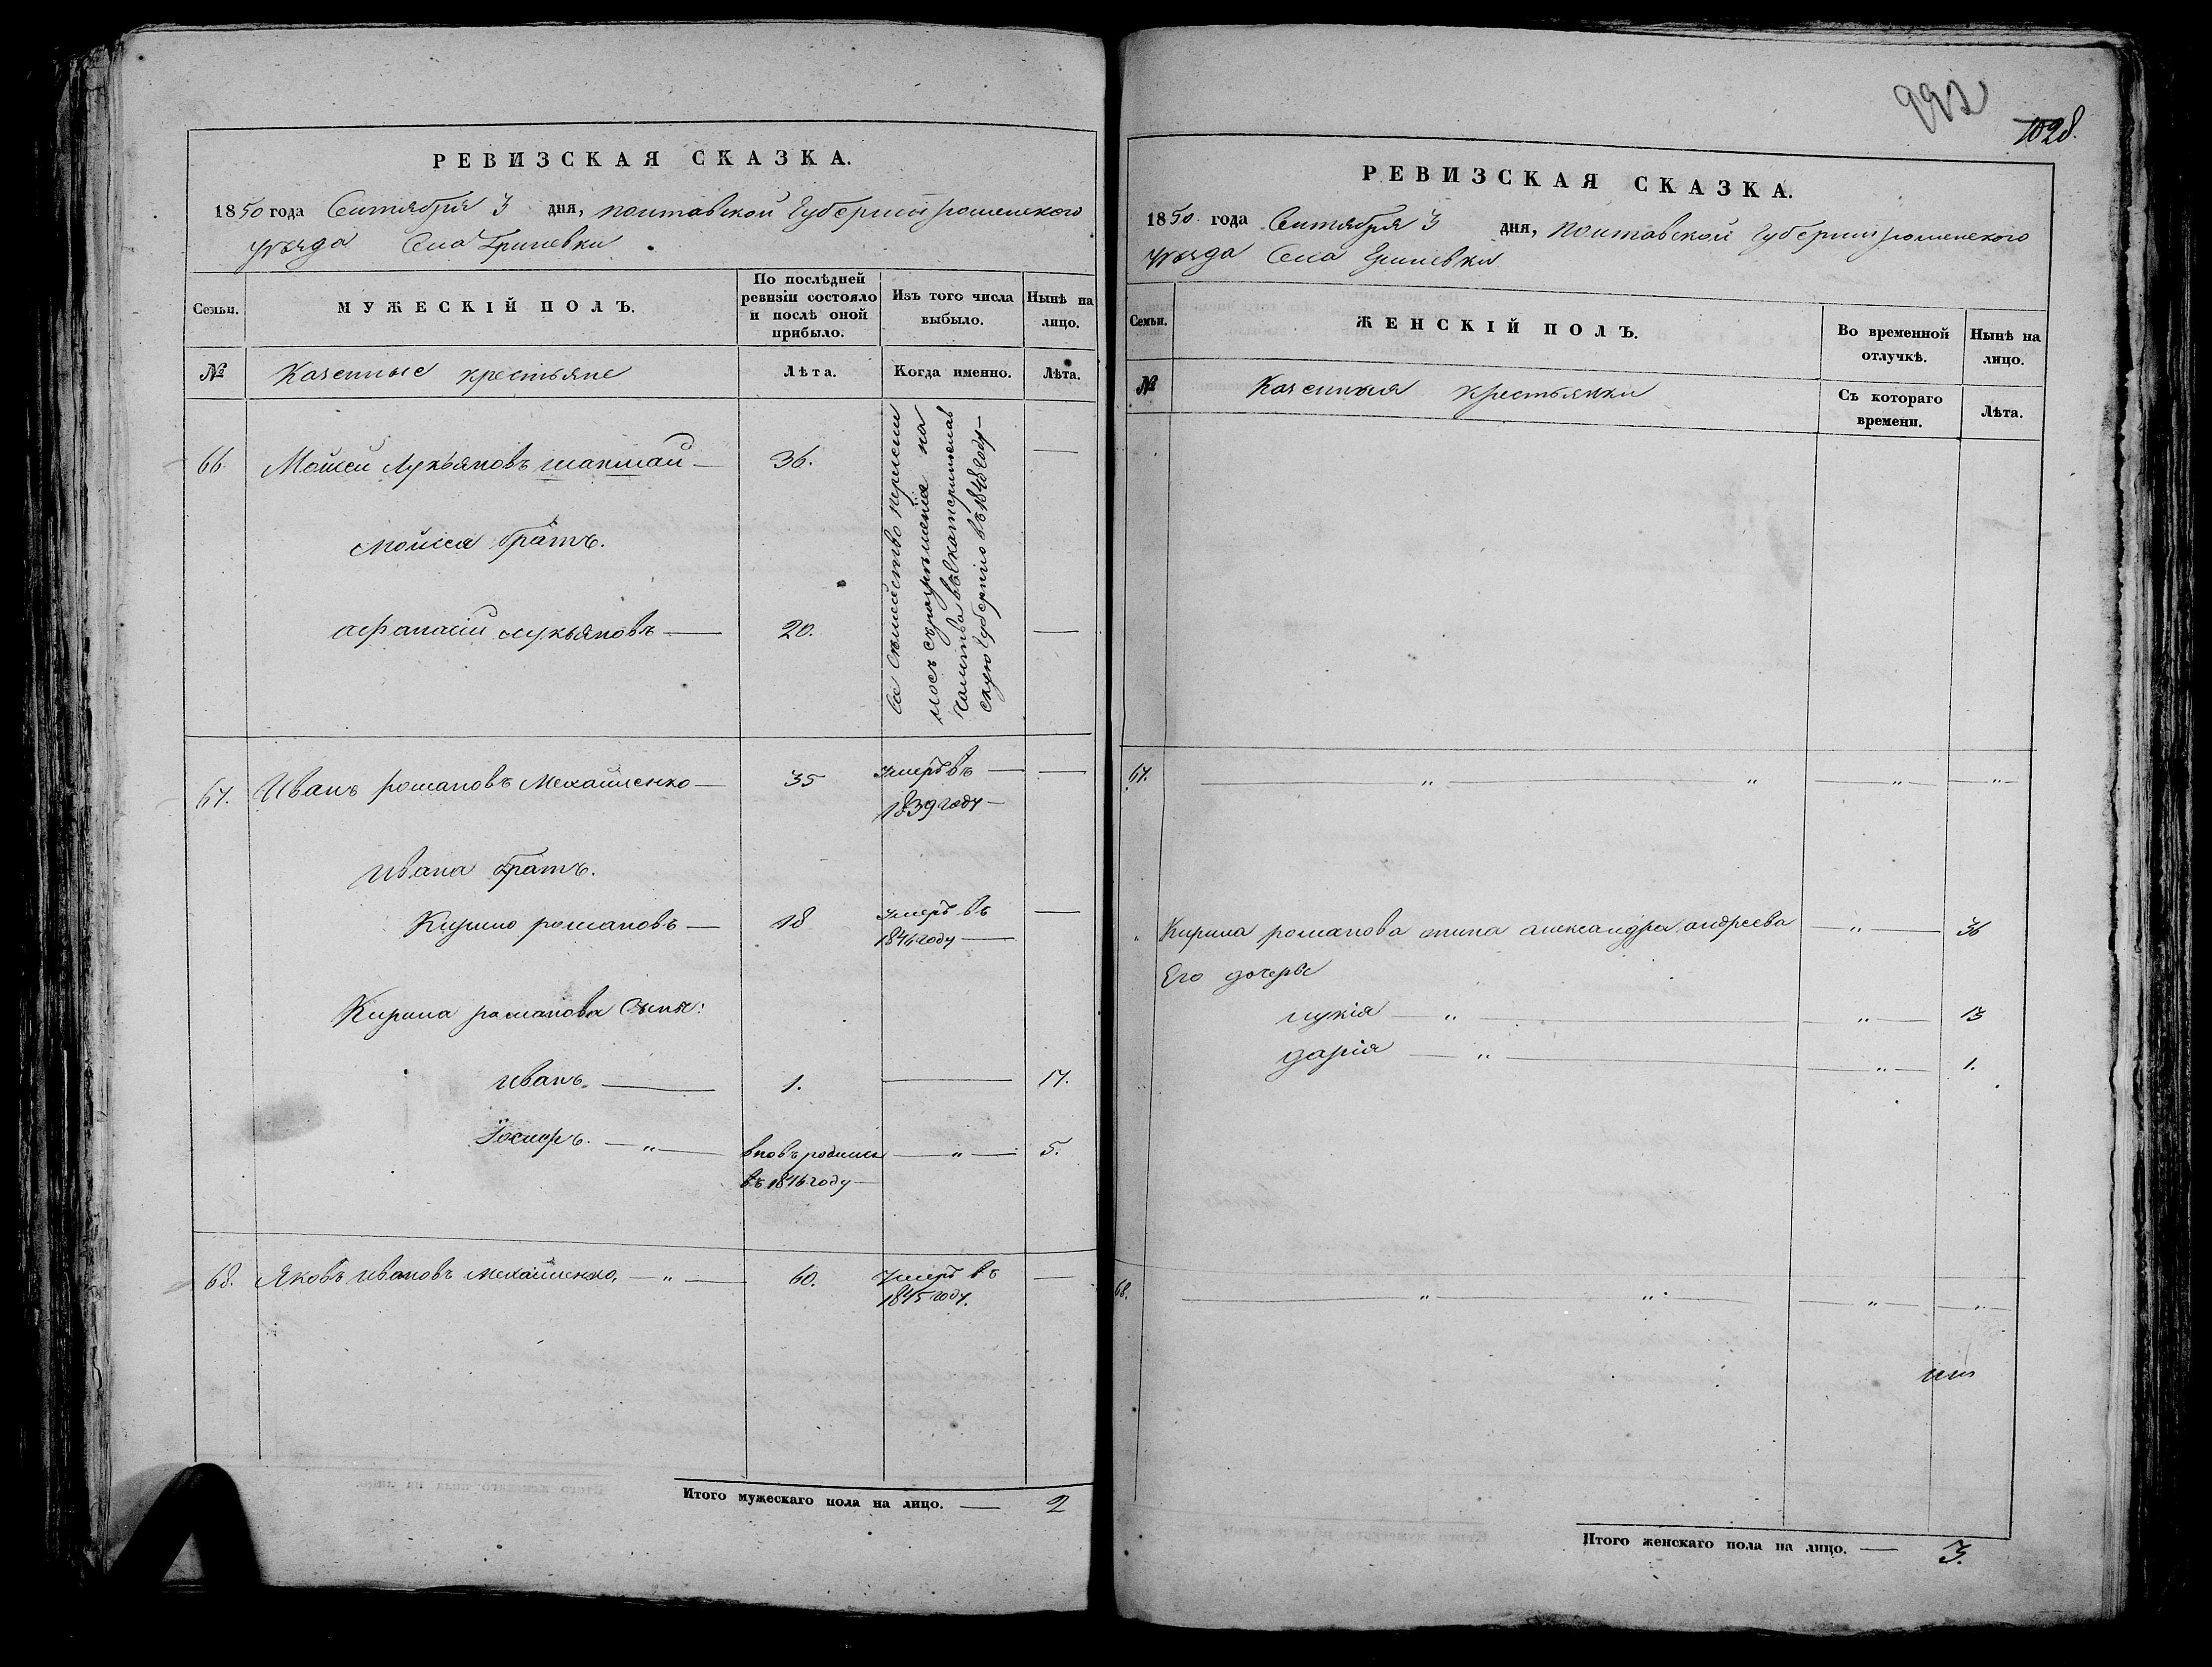 РЕВИЗСКАЯ СКАЗКА.
1850 года Сентября 3 дня, полтавской Губерніи роменского
уезда Села Гриневки
Семьи. МУЖЕСКІЙ ПОЛЪ. По послѣдней ревизіи состояло и послѣ оной прибыло. Изъ того числа выбыло. Нынѣ на лицо.
№ Казенные крестьяне Лѣта. Когда именно. Лѣта.
66. Мойсей Лукьяновъ 36.
Сіе Семейство
на
въ Екатеринослав
скую Губернію въ 1848 году
Мойсея братъ.
афанасій лукьяновъ 20.
67. Иванъ романовъ Мехайленко 35 умеръ въ
1839 году
Ивана братъ.
Кирило романовъ 18 умеръ въ
1846 году
Кирила романова Сыны:
иванъ 1. 17.
Іосифъ. вновь родился 5.
въ 1846 году
68. Яковъ ивановъ мехайленко 60. умеръ въ
1845 году.
Итого мужескаго пола на лицо. 2
992
1028.
РЕВИЗСКАЯ СКАЗКА.
1850 года Сентября 3 дня, полтавской Губерніи роменского
уезда Села Гриневки
Семьи. ЖЕНСКІЙ ПОЛЪ. Во временной отлучкѣ. Нынѣ на лицо.
№ Казенныя крестьянки Съ котораго времени. Лѣта.
67. " " " "
" Кирила романова жена александра андреева " 36
Его дочери
лукія " " 13
дарія " " 1.
68. " " " "
Итого женскаго пола на лицо. 3.